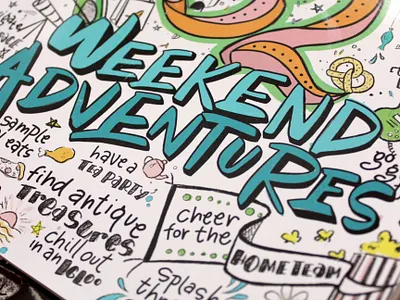 WEEKEND
ADVENTURES
sample
eats
have a
TEA PARTY
find antique
TREASURES
chill out
in an IGLOO
cheer
for the
HOME TEAM
splash
go